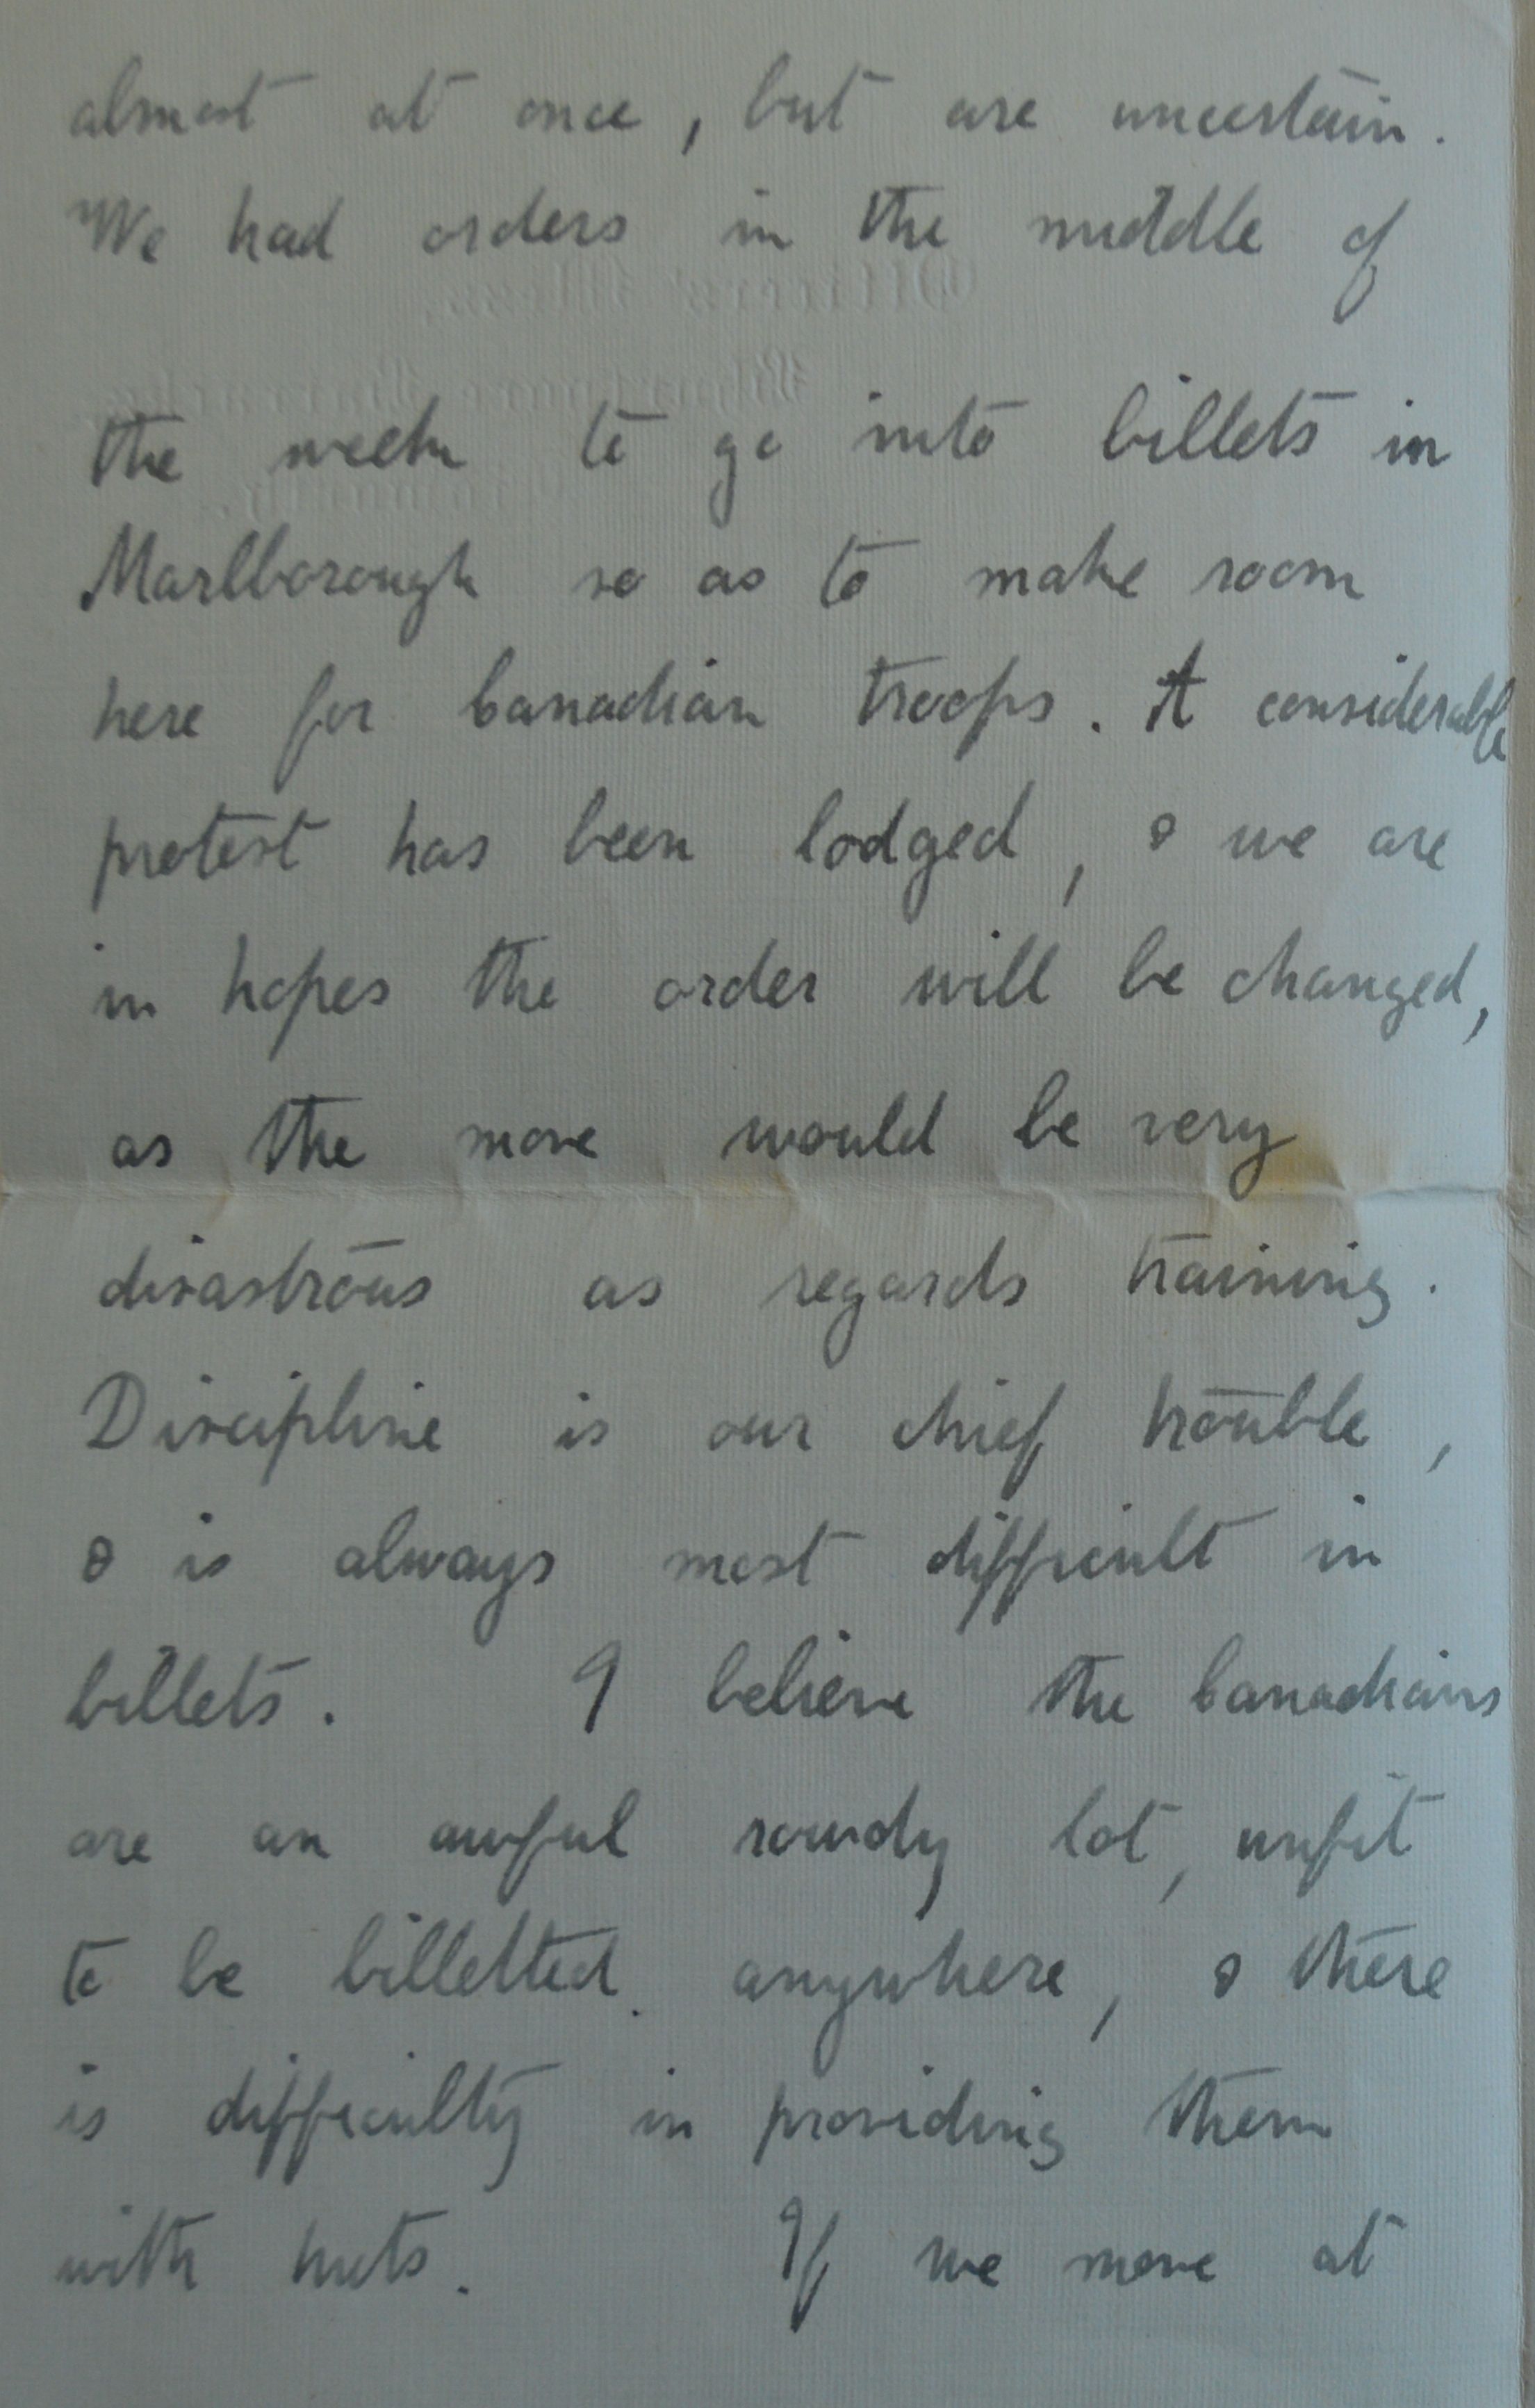 almost at once, but are uncertain.
We had orders in the middle of
the week to go into billets in
Marlborough so as to make room
here for Canadian troops. A considerable
protest has been lodged, & we are
in hopes the order will be changed,
as the move would be very
disastrous as regards training.
Discipline is our chief trouble,
& is always most difficult in
billets. I believe the Canadians
are an awful rowdy lot, unfit
to be billetted anywhere, & there
is difficulty in providing them
with huts. If we move at